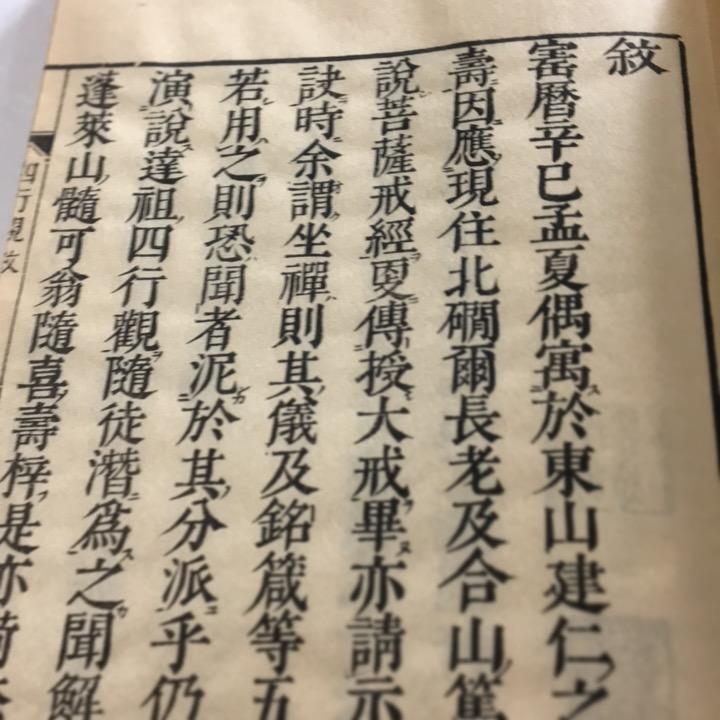 敘
寶暦辛巳孟夏偶寓於東山建仁之
壽因應現住北磵爾長老及合山篤
說菩薩戒經更傳授大戒畢亦請示
訣時余謂坐禪則其儀及銘箴等五
若用之則恐聞者泥於其分派乎仍
演說達祖四行觀隨徒潛爲之聞解
蓬萊山髓可翁隨喜壽梓是亦荷
四行觀敘